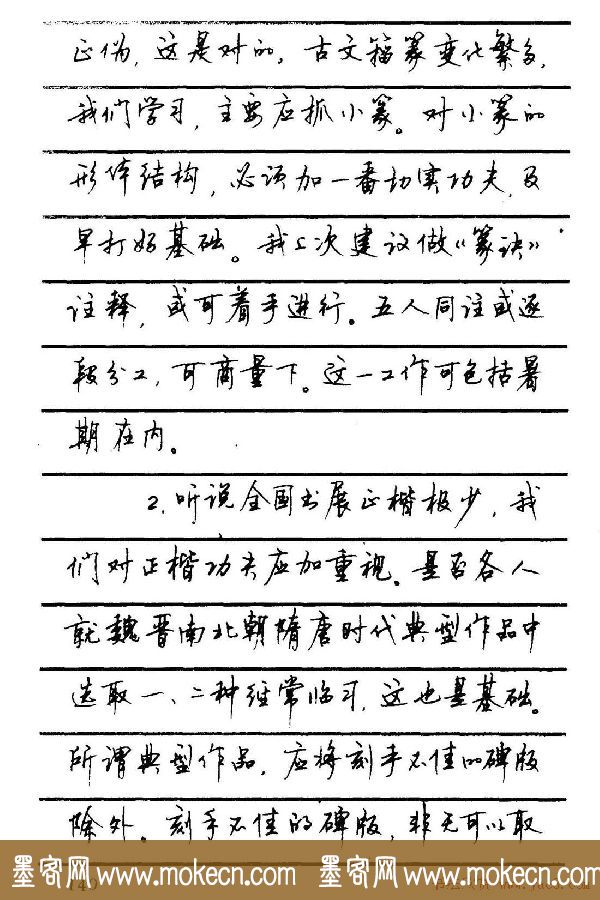 正伪，这是对的，古文籀篆变化繁多，
我们学习，主要应抓小篆。对小篆的
形体结构，必须加一番切实功夫，及
早打好基础。我上次建议做《篆诀》
注释，或可着手进行。五人同注或逐
段分工，可商量下。这一工作可包括暑
期在内。
2.听说全国书展正楷极少，我
们对正楷功夫应加重视。是否各人
就魏晋南北朝隋唐时代典型作品中
选取一、二种经常临习，这也是基础。
所谓典型作品，应将刻手不佳的碑版
除外。刻手不佳的碑版，非无可以取
墨客网 www.mokecn.com 墨客网 www.mokecn.com